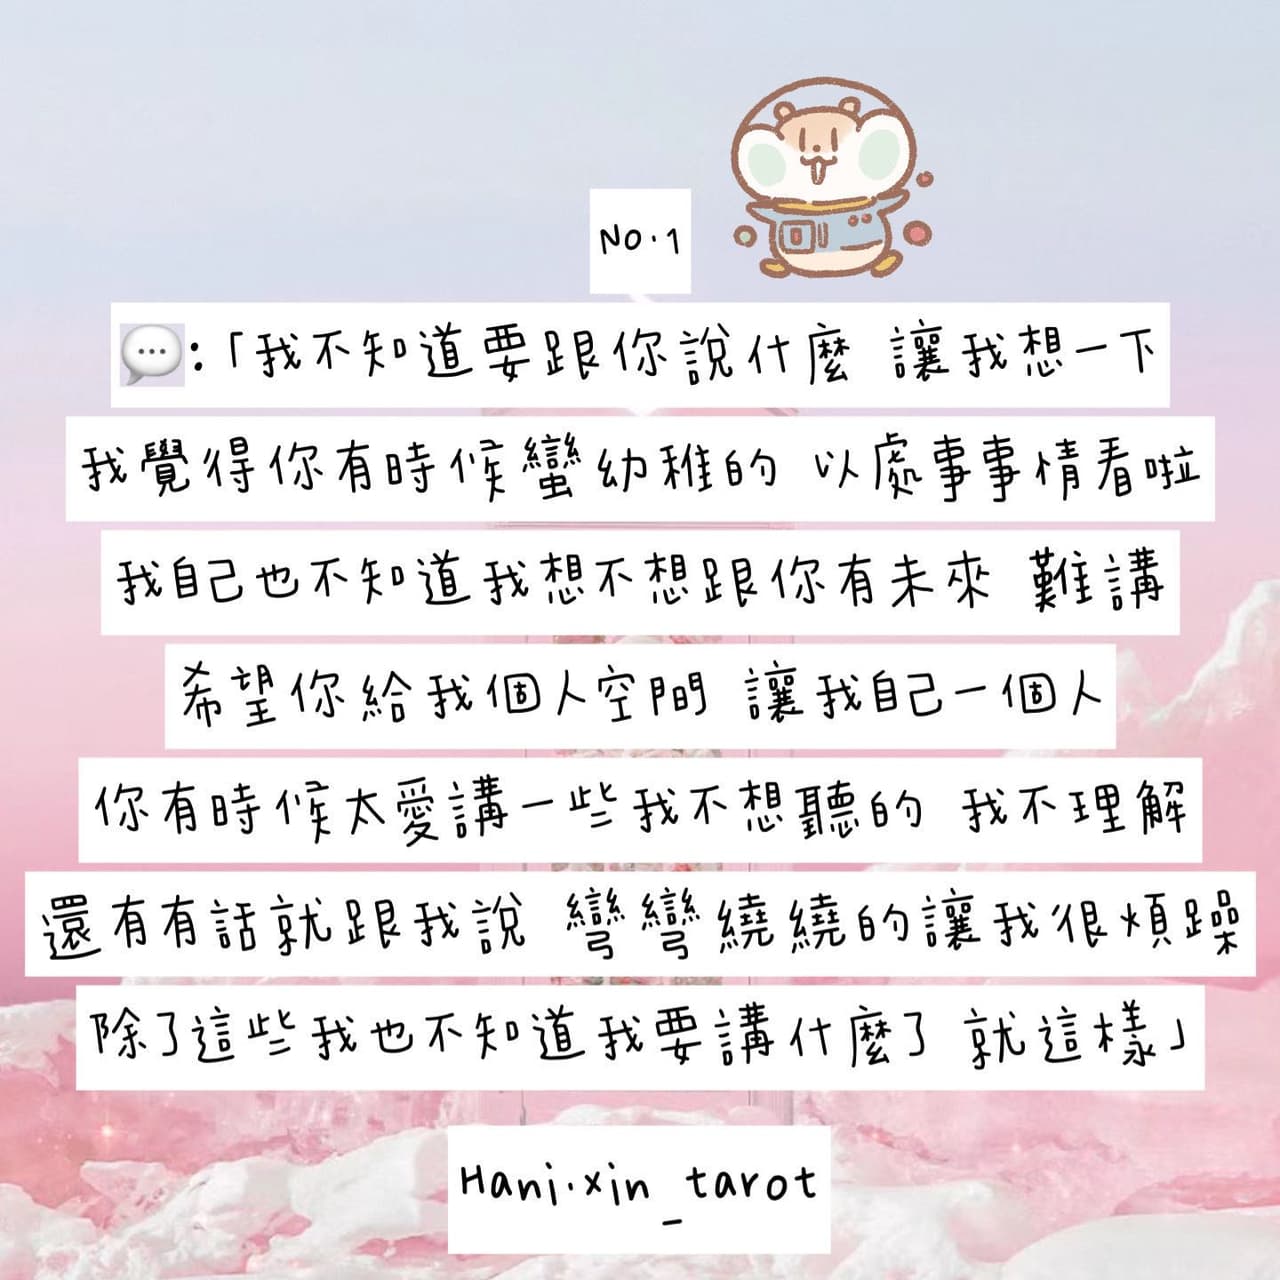 No.1
💬:「我不知道要跟你說什麼 讓我想一下
我覺得你有時候蠻幼稚的 以處事事情看啦
我自己也不知道我想不想跟你有未來 難講
希望你給我個人空間 讓我自己一個人
你有時候太愛講一些我不想聽的 我不理解
還有有話就跟我說 彎彎繞繞的讓我很煩躁
除了這些我也不知道我要講什麼了 就這樣」
Hani.xin_tarot